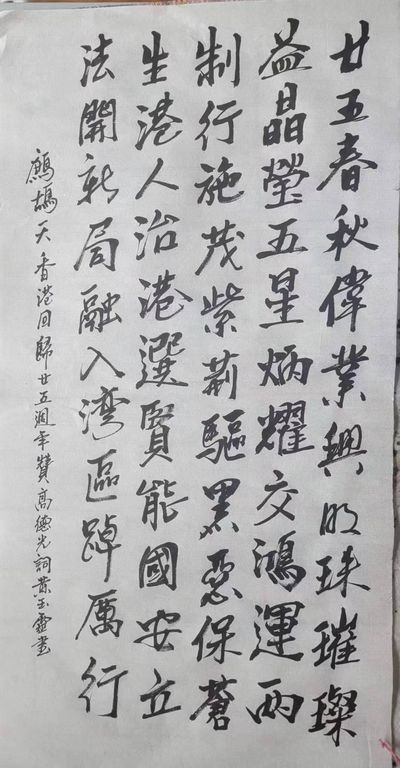 廿五春秋偉業興明珠璀璨
益晶瑩五星炳耀交鴻運兩
制行施茂紫荊驅黑惡保蒼
生港人治港選賢能國安立
法開新局融入灣區踔厲行
鷓鴣天香港回歸廿五週年贊高德光詞黄玉靈書